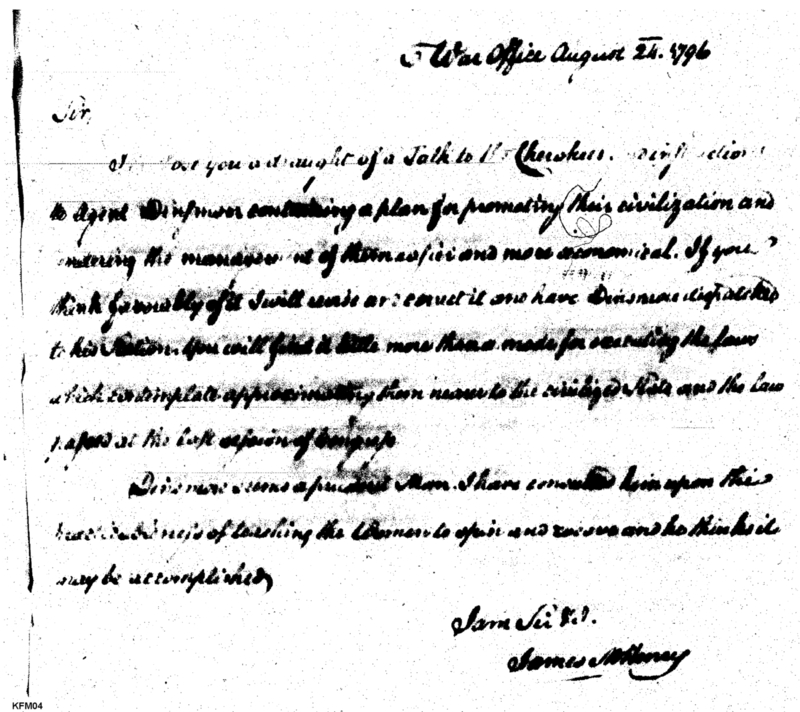 War Office August 24. 1796
Sir,
you a draught of a Talk to the Cherokees
to Agent Dinsmoor containing a plan for promoting their civilization and
rendering the management of them easier and more economical. If you
think favorably of it I will and correct it and have Dinsmore dispatched
to his Station. You will find it little more than a mode for executing the laws
which contemplate approximating them nearer to the civilized State and the law
passed at the last session of Congress
Dinsmore seems a prudent Man. I have consulted him upon the
of teaching the Women to spin and weave and he thinks it
may be accomplished,
I am Sir &c.
James McHenry
KFM04